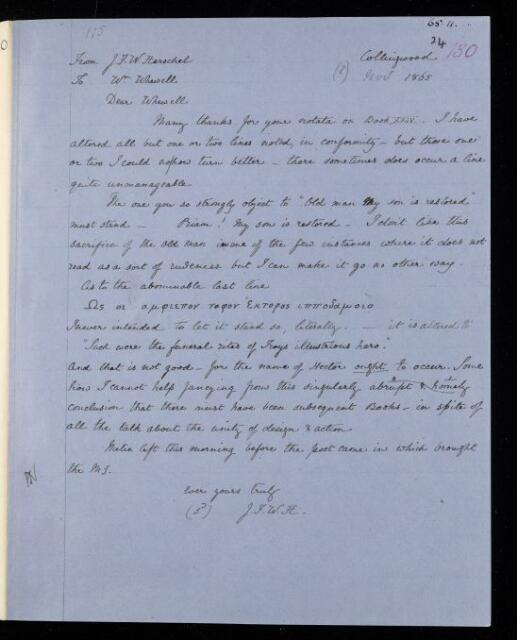 115
65.11.
24
130
From J.F.W. Herschel
Collingwood
To Wm Whewell
(?) Nov. 1865
Dear Whewell
Many thanks for your notata on Book XXIV. I have
altered all but one or two lines noted, in conformity – but those one
or two I could nohow turn better – there sometimes does occur a line
quite unmanageable
The one you so strongly object to "Old man My son is restored"
must stand – Priam! My son is restored – I don't like this
sacrifice of the old man in one of the few instances where it does not
read as a sort of rudeness but I can make it go no other way –
As to the abominable last line
Ως οι αμφιεπον ταφον Εκτορος ιπποδαμοιο
I never intended to let it stand so, literally. – it is altered to
"Such were the funeral rites of Troys illustrious hero."
And that is not good – for the name of Hector ought to occur. Some
how I cannot help fancying from this singularly abrupt & homely
conclusion that there must have been subsequent Books – in spite of
all the talk about the unity of design & action
left this morning before the post came in which brought
the MS.
ever yours truly
(sd) J.F.W.H.